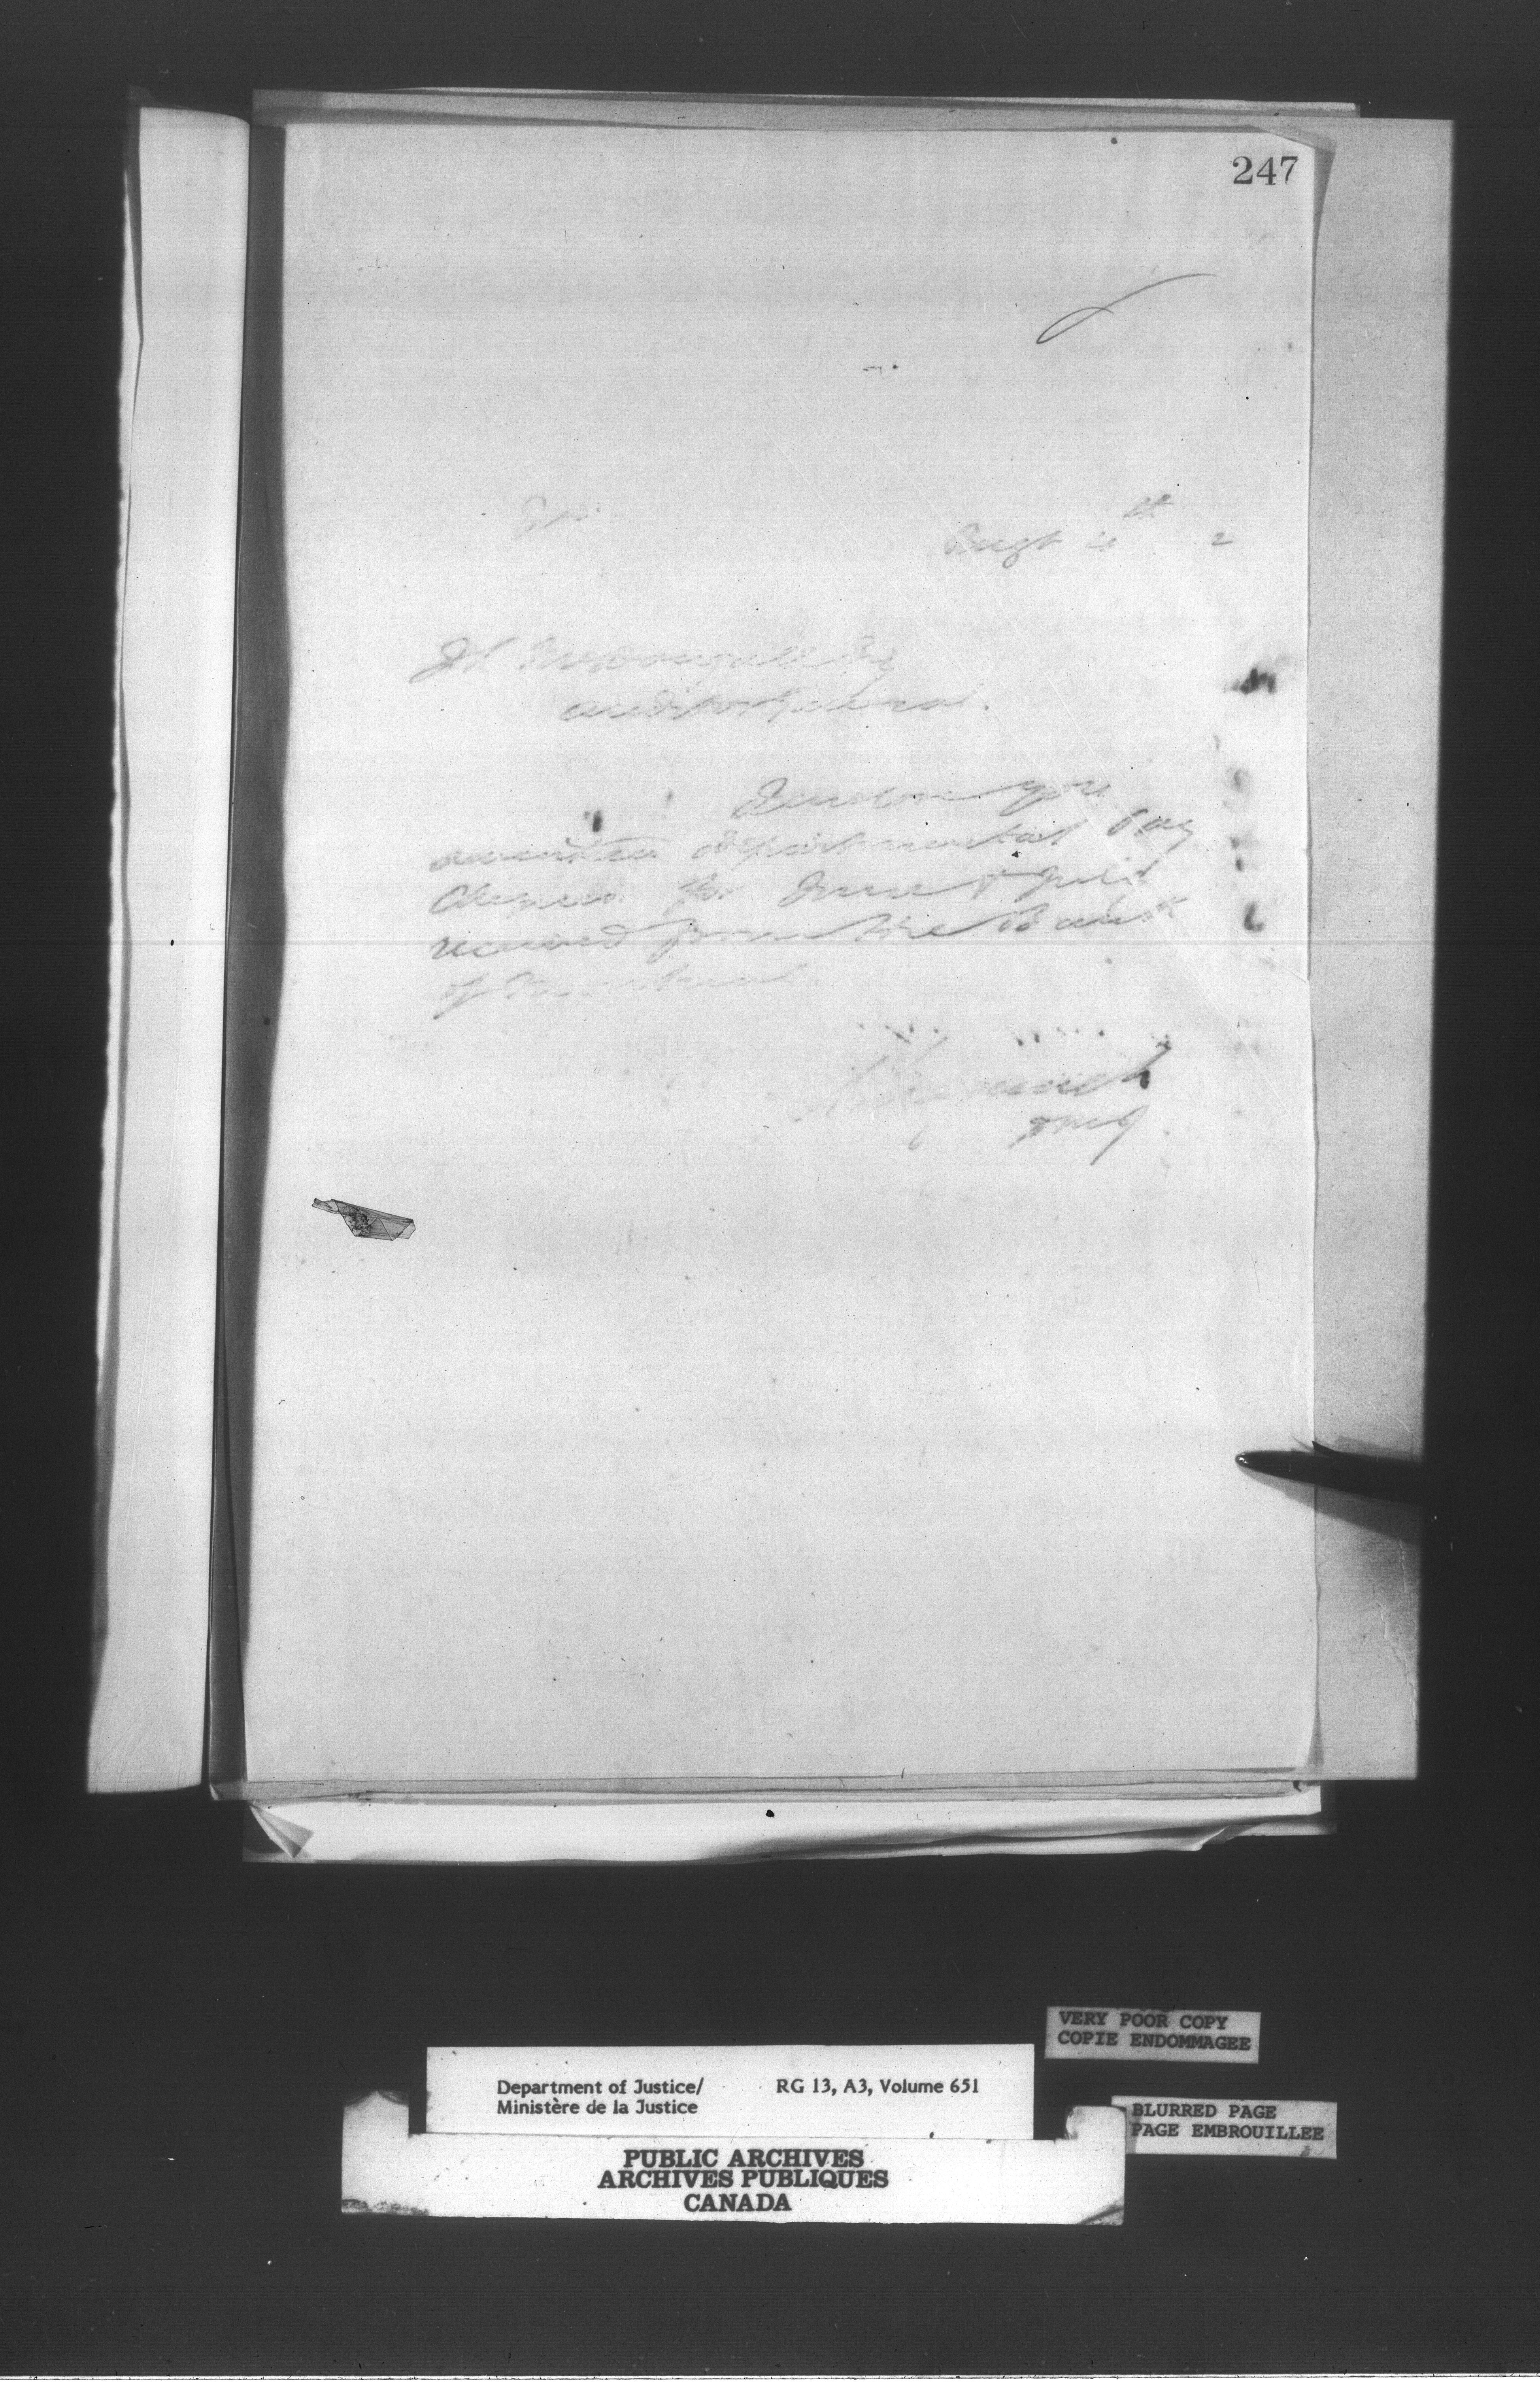 247
Augt 4th 2
J L McDougall Esq
Auditor General.
I enclose you
departmental Pay
Cheques for June & July
received from the Bank
of Montreal
VERY POOR COPY
COPIE ENDOMMAGEE
Department of Justice/ RG 13, A3, Volume 651
Ministère de la Justice
BLURRED PAGE
PAGE EMBROUILLEE
PUBLIC ARCHIVES
ARCHIVES PUBLIQUES
CANADA